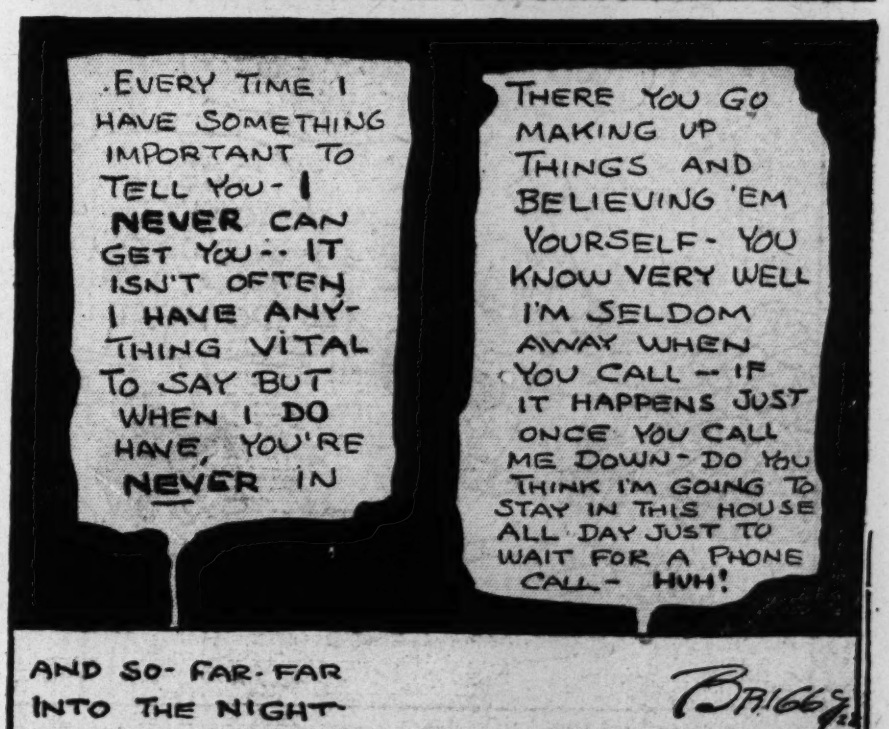 EVERY TIME I
HAVE SOMETHING
IMPORTANT TO
TELL YOU - I
NEVER CAN
GET YOU -- IT
ISN'T OFTEN
I HAVE ANY-
THING VITAL
TO SAY BUT
WHEN I DO
HAVE, YOU'RE
NEVER IN
THERE YOU GO
MAKING UP
THINGS AND
BELIEVING 'EM
YOURSELF - YOU
KNOW VERY WELL
I'M SELDOM
AWAY WHEN
YOU CALL -- IF
IT HAPPENS JUST
ONCE YOU CALL
ME DOWN - DO YOU
THINK I'M GOING TO
STAY IN THIS HOUSE
ALL DAY JUST TO
WAIT FOR A PHONE
CALL - HUH!
AND SO - FAR - FAR
INTO THE NIGHT
BRIGGS